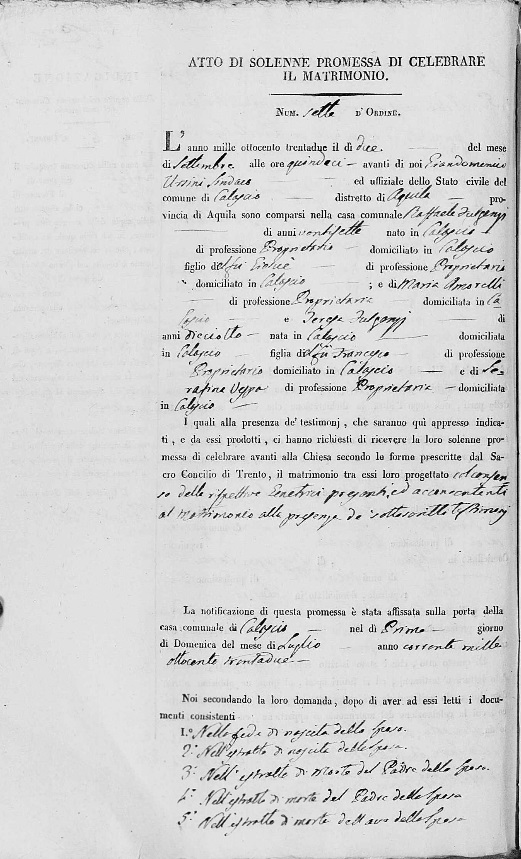 ATTO DI SOLENNE PROMESSA DI CELEBRARE
IL MATRIMONIO.
NUM. sette D'ORDINE.
L'anno mille ottocento trentadue il dì due del mese
di Settembre alle ore quindeci avanti di noi Giandomenico
Ursini Sindaco ed uffiziale dello Stato civile del
comune di Calascio distretto di Aquila pro-
vincia di Aquila sono comparsi nella casa comunale Raffaele Fulgenzj
di anni ventisette nato in Calascio
di professione Proprietario domiciliato in Calascio
figlio del fù di professione Proprietario
domiciliato in Calascio ; e di Maria
di professione Proprietaria domiciliata in Ca
lascio e Teresa Fulgenzj di
anni dieciotto nata in Calascio domiciliata
in Calascio figlia del fù Francesco di professione
Proprietario domiciliato in Calascio e di Se-
rafina di professione Proprietaria domiciliata
in Calascio
I quali alla presenza de' testimonj , che saranno quì appresso indica-
ti , e da essi prodotti , ci hanno richiesti di ricevere la loro solenne pro-
messa di celebrare avanti alla Chiesa secondo le forme prescritte dal Sa-
cro Concilio di Trento, il matrimonio tra essi loro progettato col consen-
so delle rispettive Genetrici presenti, ed acconsententi
al matrimonio alla presenza de' sottoscritti Testimonj
La notificazione di questa promessa è stata affissata sulla porta della
casa comunale di Calascio nel dì Primo giorno
di Domenica del mese di Luglio anno corrente mille
ottocento trentadue
Noi secondando la loro domanda, dopo di aver ad essi letti i docu-
menti consistenti
1.° Nella fede di nascita dello sposo.
2.° Nell'estratto di nascita della sposa.
3.° Nell'estratto di morte del Padre dello sposo.
4.° Nell'estratto di morte del Padre della sposa
5.° Nell'estratto di morte dell'avo dello sposo